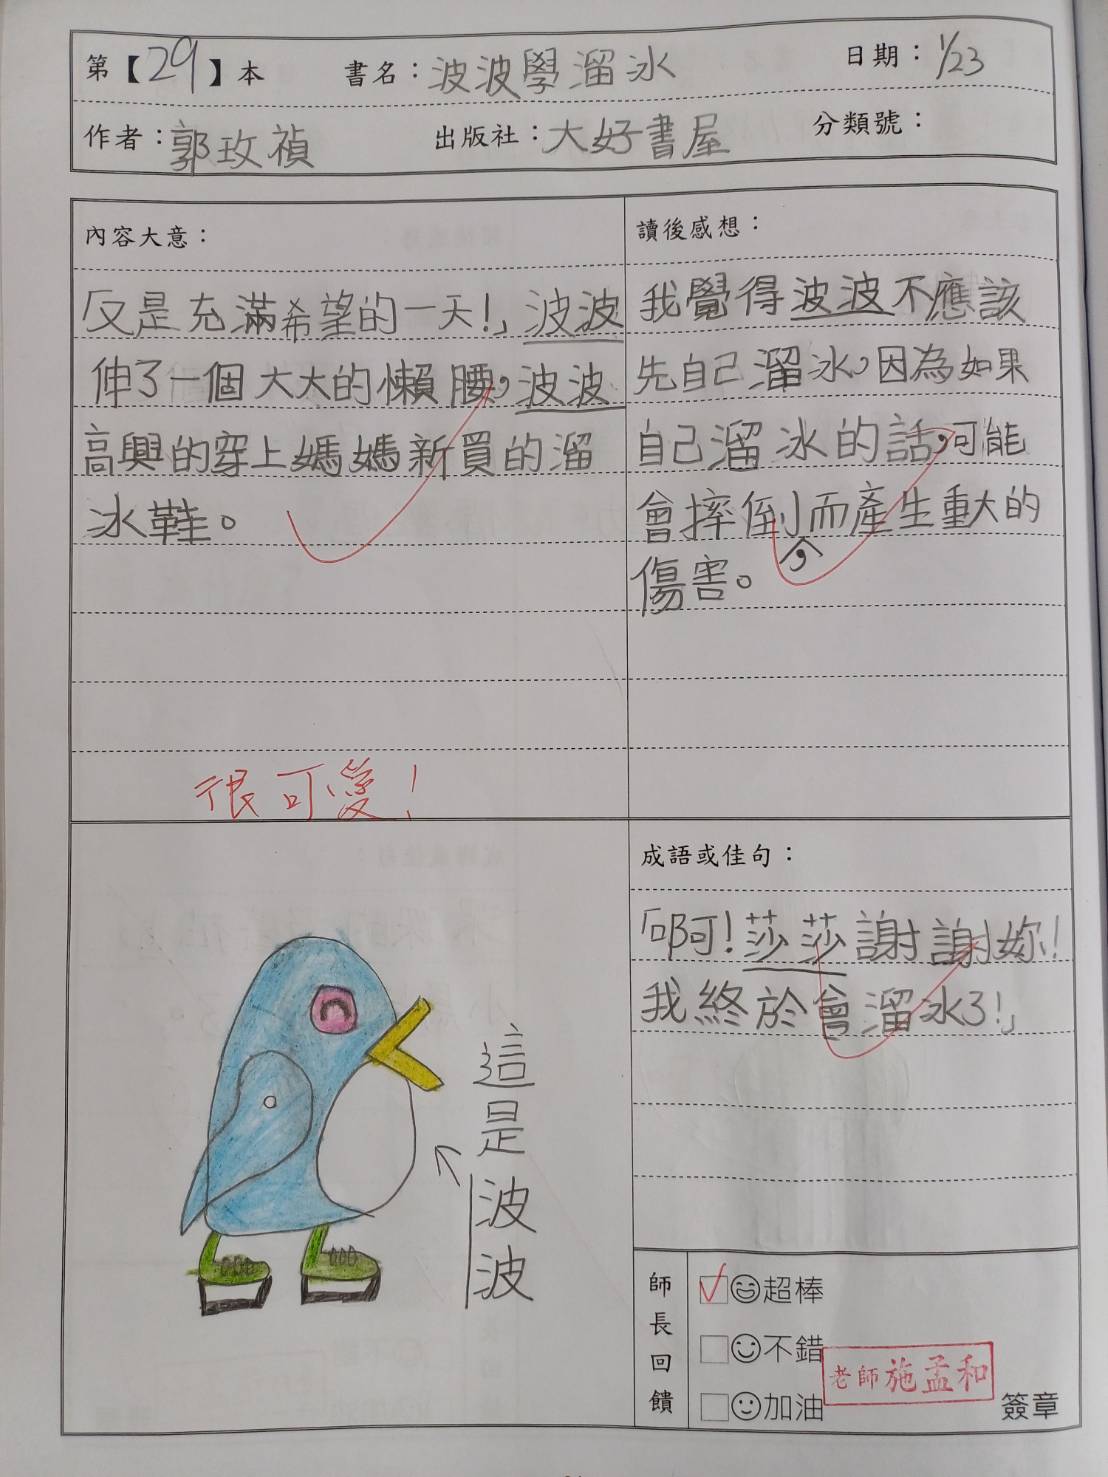 第【29】本 書名：波波學溜冰 日期：1/23
作者：郭玫禎 出版社：大好書屋 分類號：
內容大意：
「又是充滿希望的一天!」波波
伸了一個大大的懶腰，波波
高興的穿上媽媽新買的溜
冰鞋。
很可愛!
讀後感想：
我覺得波波不應該
先自己溜冰，因為如果
自己溜冰的話，可能
會摔倒，而產生重大的
傷害。
這是波波
成語或佳句：
「啊!莎莎謝謝妳!
我終於會溜冰了!」
師長回饋
超棒
不錯
加油
老師 施孟和
簽章